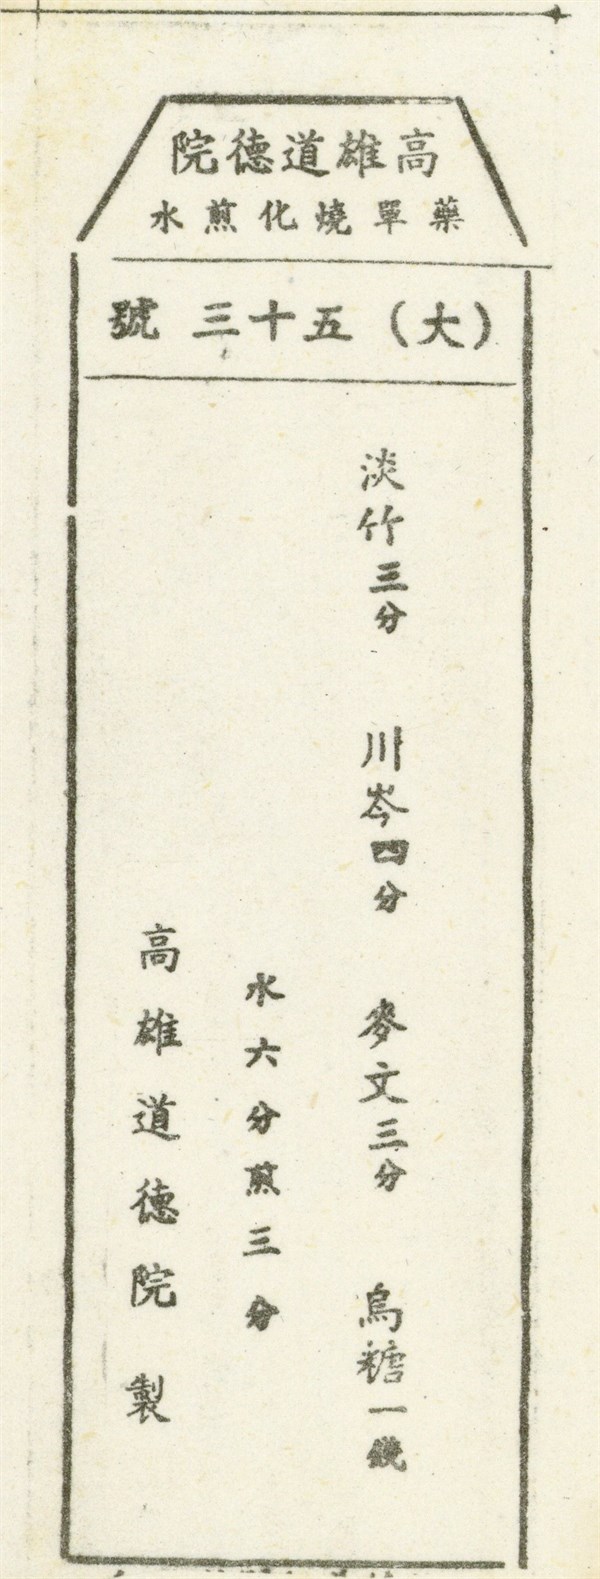 高雄道德院
藥單燒化煎水
(大)五十三號
淡竹三分 川岑四分 麥文三分 烏糖一錢
水六分煎三分
高雄道德院製